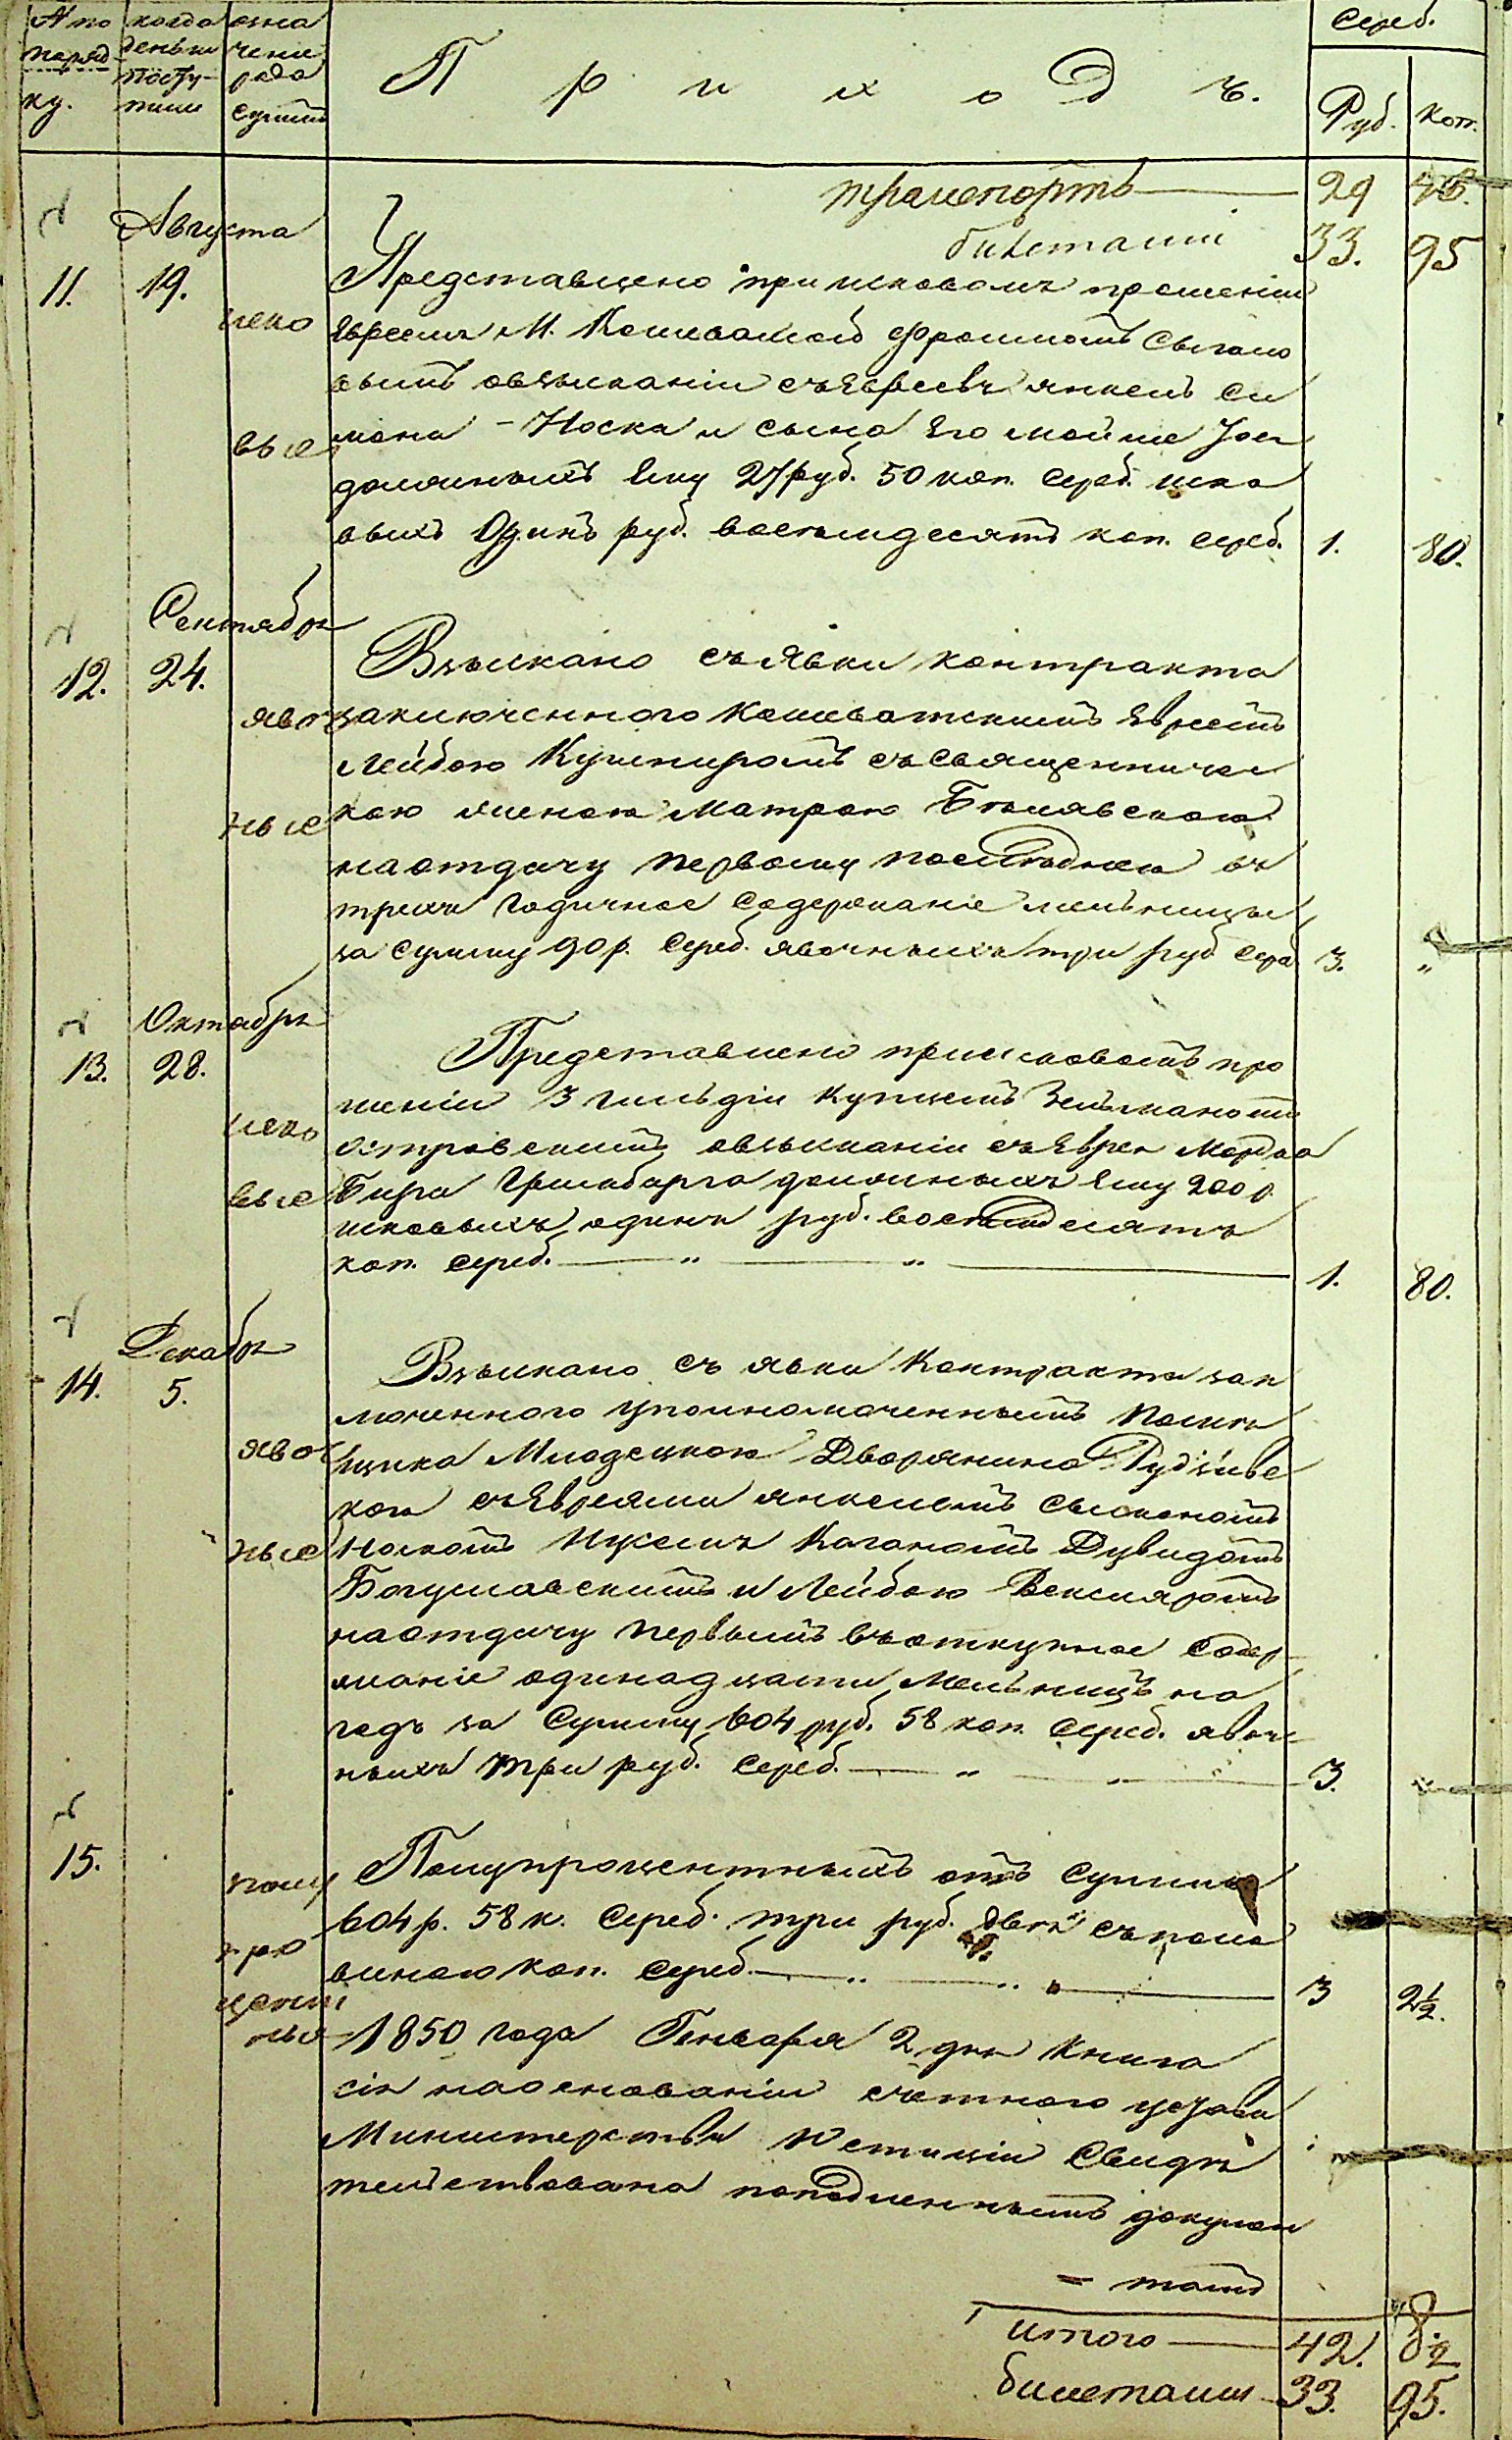 № по поряд- ку.
когда деньги посту- пили
озна чение рода суммы
Приходъ.
Сереб.
Руб. Коп.
транспортъ 29
билетами 33. 95
Августа
11. 19.
иско выя
Представлено при исковомъ прошеніи
Евреемъ М.
о взысканіи съ Евреевъ Янкеля Си
мона - Носка и сына его Мойше
должныхъ ему 27 руб. 50 коп. сереб. иско
выхъ Одинъ руб. восемьдесятъ коп. сереб. 1. 80.
Сентября
12. 24.
явоч ныя
Взыскано съ явки контракта
заключеннаго Кошеватскимъ Евреемъ
Лейбою Кушниромъ съ священничес
кою женою Матроною Белявскою
на отдачу первому последнею въ
трехъ годичное содержаніе мельницы
за сумму 90 р. сереб. явочныхъ три руб сереб 3. "
Октября
13. 28.
иско выя
Представлено при исковомъ про
шеніи 3 гильдіи купцемъ Зельманомъ
Островскимъ о взысканіи съ Еврея Мордка
Бера Гринберга должныхъ ему 200 р.
исковыхъ одинъ руб. восемьдесятъ
коп. сереб. — " — " — 1. 80.
Декабря
14. 5.
явоч ныя
Взыскано съ явки Контракта зак
люченнаго уполномоченнымъ помѣ
щика Млодецкою Дворянина
съ Евреями Янкелемъ Симономъ
Носкомъ Каганомъ Дувидомъ
Богуславскимъ и Лейбою Вексляромъ
на отдачу первымъ въ откупное содер-
жаніе одинадцати мельницъ на
годъ за сумму 604 руб. 58 коп. сереб. явоч
ныхъ три руб. сереб. — " — " — 3. "
15.
полу про цент ныя
Полупроцентныхъ отъ суммы
604 р. 58 к. сереб. три руб. двѣ съ поло
виною коп. сереб. — " — " — 3 2½.
1850 года Генваря 2 дня книга
сія на основаніи счетнаго устава
Министерства Юстиціи Свидѣ
тельствована по подленнымъ докумен
= тамъ
итого — 42.
билетами 33. 95.